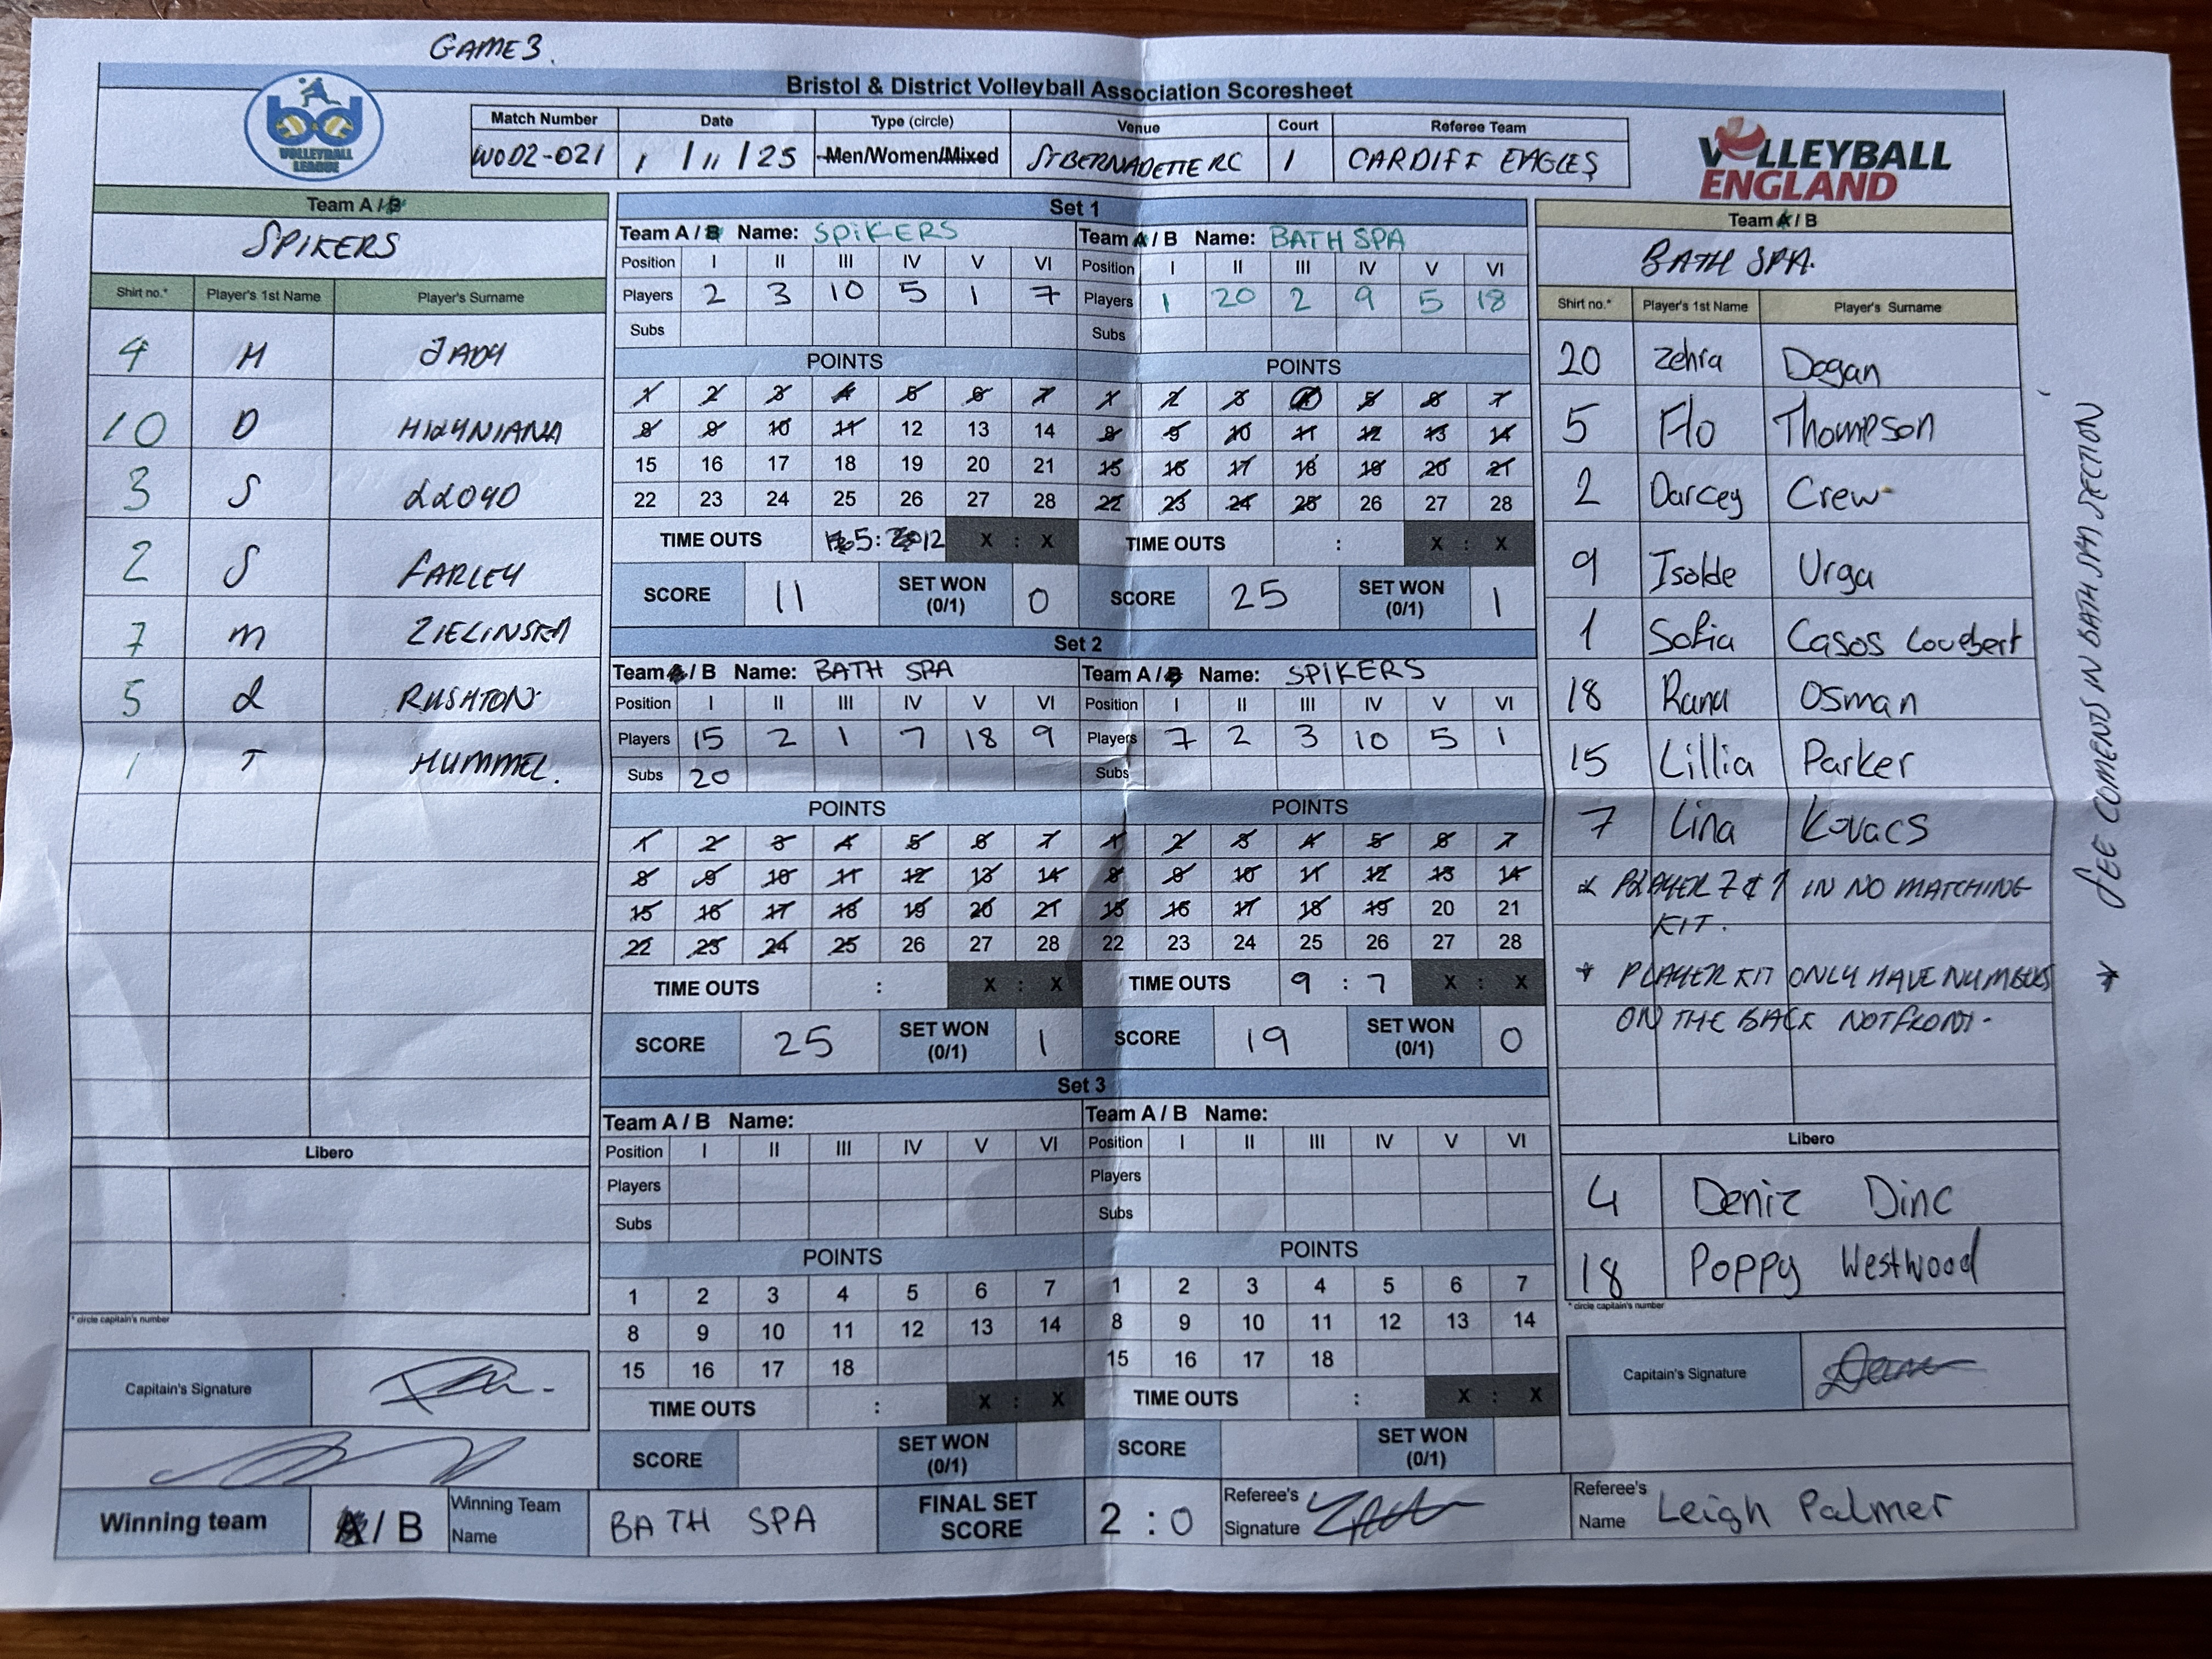 GAME 3.
Bristol & District Volleyball Association Scoresheet
VOLLEYBALL LEAGUE
Match Number Date Type (circle) Venue Court Referee Team
WOD2-021 1/11/25 Men/Women/Mixed ST BERNADETTE RC 1 CARDIFF EAGLES
VOLLEYBALL ENGLAND
Team A / B
SPIKERS
Shirt no.* Player's 1st Name Player's Surname
4 H JADY
10 D
3 S LLOYD
2 S FARLEY
7 M ZIELINSKA
5 L RUSHTON
1 T HUMMEL.
Libero
* circle captain's number
Capitain's Signature
Set 1
Team A / B Name: SPIKERS
Position I II III IV V VI
Players 2 3 10 5 1 7
Subs
POINTS
1 2 3 4 5 6 7
8 9 10 11 12 13 14
15 16 17 18 19 20 21
22 23 24 25 26 27 28
TIME OUTS 5:12 X : X
SCORE 11 SET WON (0/1) 0
Team A / B Name: BATH SPA
Position I II III IV V VI
Players 1 20 2 9 5 18
Subs
POINTS
1 2 3 4 5 6 7
8 9 10 11 12 13 14
15 16 17 18 19 20 21
22 23 24 25 26 27 28
TIME OUTS : X : X
SCORE 25 SET WON (0/1) 1
Set 2
Team A / B Name: BATH SPA
Position I II III IV V VI
Players 15 2 1 7 18 9
Subs 20
POINTS
1 2 3 4 5 6 7
8 9 10 11 12 13 14
15 16 17 18 19 20 21
22 23 24 25 26 27 28
TIME OUTS : X : X
SCORE 25 SET WON (0/1) 1
Team A / B Name: SPIKERS
Position I II III IV V VI
Players 7 2 3 10 5 1
Subs
POINTS
1 2 3 4 5 6 7
8 9 10 11 12 13 14
15 16 17 18 19 20 21
22 23 24 25 26 27 28
TIME OUTS 9 : 7 X : X
SCORE 19 SET WON (0/1) 0
Set 3
Team A / B Name:
Position I II III IV V VI
Players
Subs
POINTS
1 2 3 4 5 6 7
8 9 10 11 12 13 14
15 16 17 18
TIME OUTS : X : X
SCORE SET WON (0/1)
Team A / B Name:
Position I II III IV V VI
Players
Subs
POINTS
1 2 3 4 5 6 7
8 9 10 11 12 13 14
15 16 17 18
TIME OUTS : X : X
SCORE SET WON (0/1)
Team A / B
BATH SPA.
Shirt no.* Player's 1st Name Player's Surname
20 Zehra Dogan
5 Flo Thompson
2 Darcey Crew
9 Isolde Urga
1 Sofia Casos
18 Rana Osman
15 Lillia Parker
7 Lina Kovacs
* PLAYER 7 & 1 IN NO MATCHING
KIT.
* PLAYER KIT ONLY HAVE NUMBERS
ON THE BACK NOT FRONT-
Libero
4 Deniz Dinc
18 Poppy Westwood
* circle captain's number
Capitain's Signature
* SEE COMENTS IN BATH SPA SECTION
Winning team A / B Winning Team Name BATH SPA FINAL SET SCORE 2 : 0 Referee's Signature Referee's Name Leigh Palmer